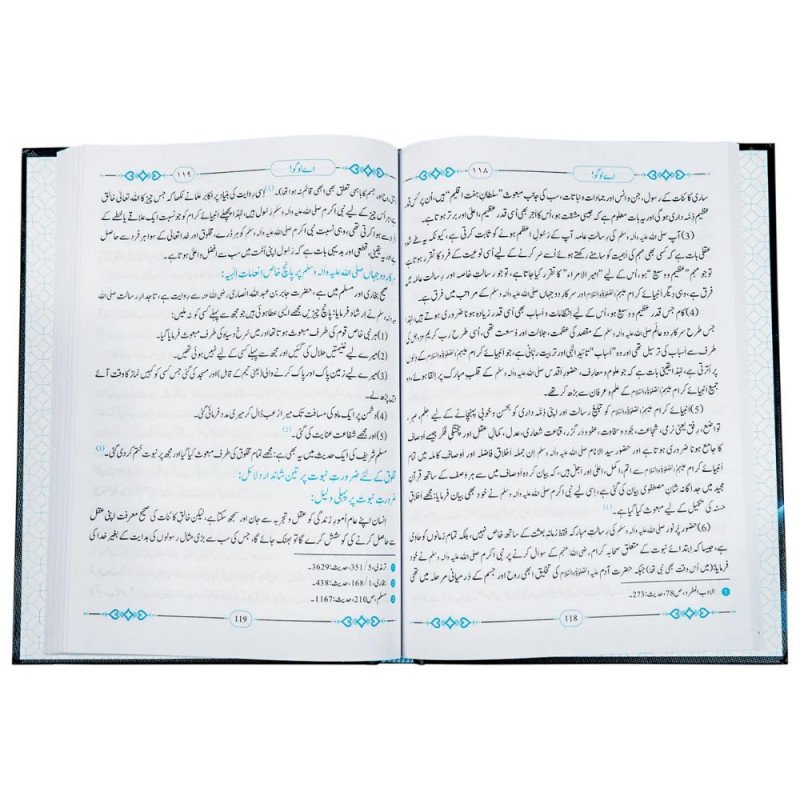 ۱۱۸
اے لوگو!
ساری کائنات کے رسول، جن و انس اور جمادات و نباتات، سب کی جانب مبعوث ”سلطان ہفت اقلیم“ ہیں، اُن پر کس قدر
عظیم ذمہ داری ہو گی اور یہ بات معلوم ہے کہ جیسی مشقت ہو، اُس کا اجر بھی اُسی قدر عظیم، اعلیٰ اور برتر ہوتا ہے۔
(3) آپ صلی اللہ علیہ والہ وسلم کی رسالتِ عامہ آپ کے رسولِ اعظم ہونے کو ثابت کرتی ہے، کیونکہ یہ طے شدہ
عقلی بات ہے کہ کسی بھی مہم کی اہمیت کو سامنے رکھتے ہوئے اُسے سر کرنے کے لیے اُسی نوعیت کے فرد کا تقرر کیا جاتا ہے
تو جو مہم ”عظیم و وسیع“ ہو، اُس کے لیے ”امیر الامراء“ کا تقرر کیا جاتا ہے، تو جو فرق رسالتِ خاصہ اور رسالتِ عامہ میں
فرق ہے، وہی دیگر انبیائے کرام علیہم الصلوٰۃ والسلام اور سرکارِ دو جہاں صلی اللہ علیہ والہ وسلم کے مراتب میں فرق ہے۔
(4) کام جس قدر عظیم و وسیع ہو، اُس کے لیے انتظامات و اسباب بھی اُسی قدر زیادہ ہونا ضروری ہوتے ہیں،
جس طرح سرکارِ دو عالم صلی اللہ علیہ والہ وسلم کے مقصد کی عظمت، جلالت اور وُسعت تھی، اُسی طرح ربِ کریم عزوجل کی
طرف سے اسباب کی ترسیل تھی اور وہ ”اسباب“ تائیدِ الٰہی اور تربیتِ ربانی ہے، جو انبیائے کرام علیہم الصلوٰۃ والسلام
پر اُترتی ہے، لہٰذا یقینی بات ہے کہ جو علوم و معارف، حضورِ اقدس صلی اللہ علیہ والہ وسلم کے قلبِ مبارک پر القا ہوئے، وہ
جمیع انبیائے کرام علیہم الصلوٰۃ والسلام کے علم و عرفان سے بڑھ کر تھے۔
(5) انبیائے کرام علیہم الصلوٰۃ والسلام کو تبلیغِ رسالت اور اپنی ذمہ داری کو بحسن و خوبی پہنچانے کے لیے علم، صبر،
تواضع، رفق یعنی نرمی، شجاعت، جود و سخاوت، عفو و درگزر، قناعت شعاری، عدل، کمالِ عقل اور پختگی فکر جیسے اوصاف
کا جامع ہونا ضروری ہوتا ہے اور حضور سید الانام صلی اللہ علیہ والہ وسلم ان جملہ اَخلاقِ فاضلہ اور اوصافِ کاملہ میں تمام
انبیائے کرام علیہم الصلوٰۃ والسلام سے اتم، اکمل، اعلیٰ اور اجل ہیں، کہ بیان کردہ اوصاف میں سے ہر ہر وصف کے ساتھ قرآن
مجید میں جداگانہ شانِ مصطفوی بیان کی گئی ہے، اسی لیے نبی اکرم صلی اللہ علیہ والہ وسلم نے خود بھی بیان فرمایا: مجھے اَخلاقِ
حسنہ کی تکمیل کے لیے مبعوث کیا گیا ہے۔ (1)
(6) حضورِ پُرنور صلی اللہ علیہ والہ وسلم کی رسالتِ مبارکہ فقط زمانہ بعثت کے ساتھ خاص نہیں، بلکہ تمام زمانوں کو حاوی
ہے، جیسا کہ ابتدائے نبوت کے متعلق صحابہ کرام رضی اللہ عنہم کے سوال کرنے پر نبی اکرم صلی اللہ علیہ والہ وسلم نے خود
فرمایا: (میں اُس وقت بھی نبی تھا) جبکہ حضرت آدم علیہ الصلوٰۃ والسلام کی تخلیق ابھی روح اور جسم کے درمیانی مرحلہ میں تھی
1 الادب المفرد، ص78، حدیث: 273۔
118
۱۱۹
اے لوگو!
(یعنی روح اور جسم کا باہمی تعلق بھی ابھی قائم نہ ہوا تھا)۔ (1) اِسی روایت کی بنیاد پر اکابر علما نے لکھا کہ جس چیز کا اللہ تعالیٰ خالق
ہے اُس چیز کے لیے نبی اکرم صلی اللہ علیہ والہ وسلم رسول ہیں، لہٰذا پچھلے انبیائے کرام کو جو نسبت ایک علاقے یا خطے کے
سے ہوا کرتی تھی، وہی نسبت نبی اکرم صلی اللہ علیہ والہ وسلم کو ہر ذرے، مخلوق اور خدا تعالیٰ کے سوا ہر فرد سے حاصل
ہے اور یہ یقینی، قطعی اور بدیہی بات ہے کہ رسول اپنی اُمت میں سب سے افضل و اعلیٰ ہوتا ہے۔
سرکارِ دو جہاں صلی اللہ علیہ والہ وسلم پر پانچ خاص انعاماتِ الٰہیہ:
صحیح بخاری اور مسلم میں ہے، حضرت جابر بن عبد اللہ انصاری رضی اللہ عنہ سے روایت ہے، تاجدارِ رسالت صلی اللہ
علیہ والہ وسلم نے ارشاد فرمایا: پانچ چیزیں مجھے ایسی عطا ہوئی ہیں جو مجھ سے پہلے کسی کو نہ ملیں:
(1) ہر نبی خاص قوم کی طرف مبعوث ہوتا تھا اور میں سرخ و سیاہ کی طرف مبعوث فرمایا گیا۔
(2) میرے لیے غنیمتیں حلال کی گئیں اور مجھ سے پہلے کسی کے لیے نہیں ہوئی تھیں۔
(3) میرے لیے زمین پاک اور پاک کرنے والی (یعنی تیمم کے قابل) اور مسجد کی گئی جس کسی کو کہیں نماز کا وقت آئے
وہیں پڑھ لے۔
(4) دشمن پر ایک ماہ کی مسافت تک میرا رعب ڈال کر میری مدد فرمائی گئی۔
(5) اور مجھے شفاعت عنایت کی گئی۔ (2)
مسلم شریف کی ایک حدیث میں یہ بھی ہے: مجھے تمام مخلوق کی طرف مبعوث کیا گیا اور مجھ پر نبوت ختم کر دی گئی۔ (3)
مخلوق کے لئے ضرورتِ نبوت پر تین شاندار دلائل:
ضرورتِ نبوت پر پہلی دلیل:
انسان اپنے عام اُمورِ زندگی کو عقل و تجربہ سے جان اور سمجھ سکتا ہے، لیکن خالقِ کائنات کی صحیح معرفت اپنی عقل
سے حاصل کرنے کی کوشش کرے گا تو بھٹک جائے گا، جس کی سب سے بڑی مثال رسولوں کی ہدایت کے بغیر خدا کی
1 ترمذی، 5/351، حدیث: 3629۔
2 بخاری، 1/168، حدیث: 438۔
3 مسلم، ص210، حدیث: 1167۔
119